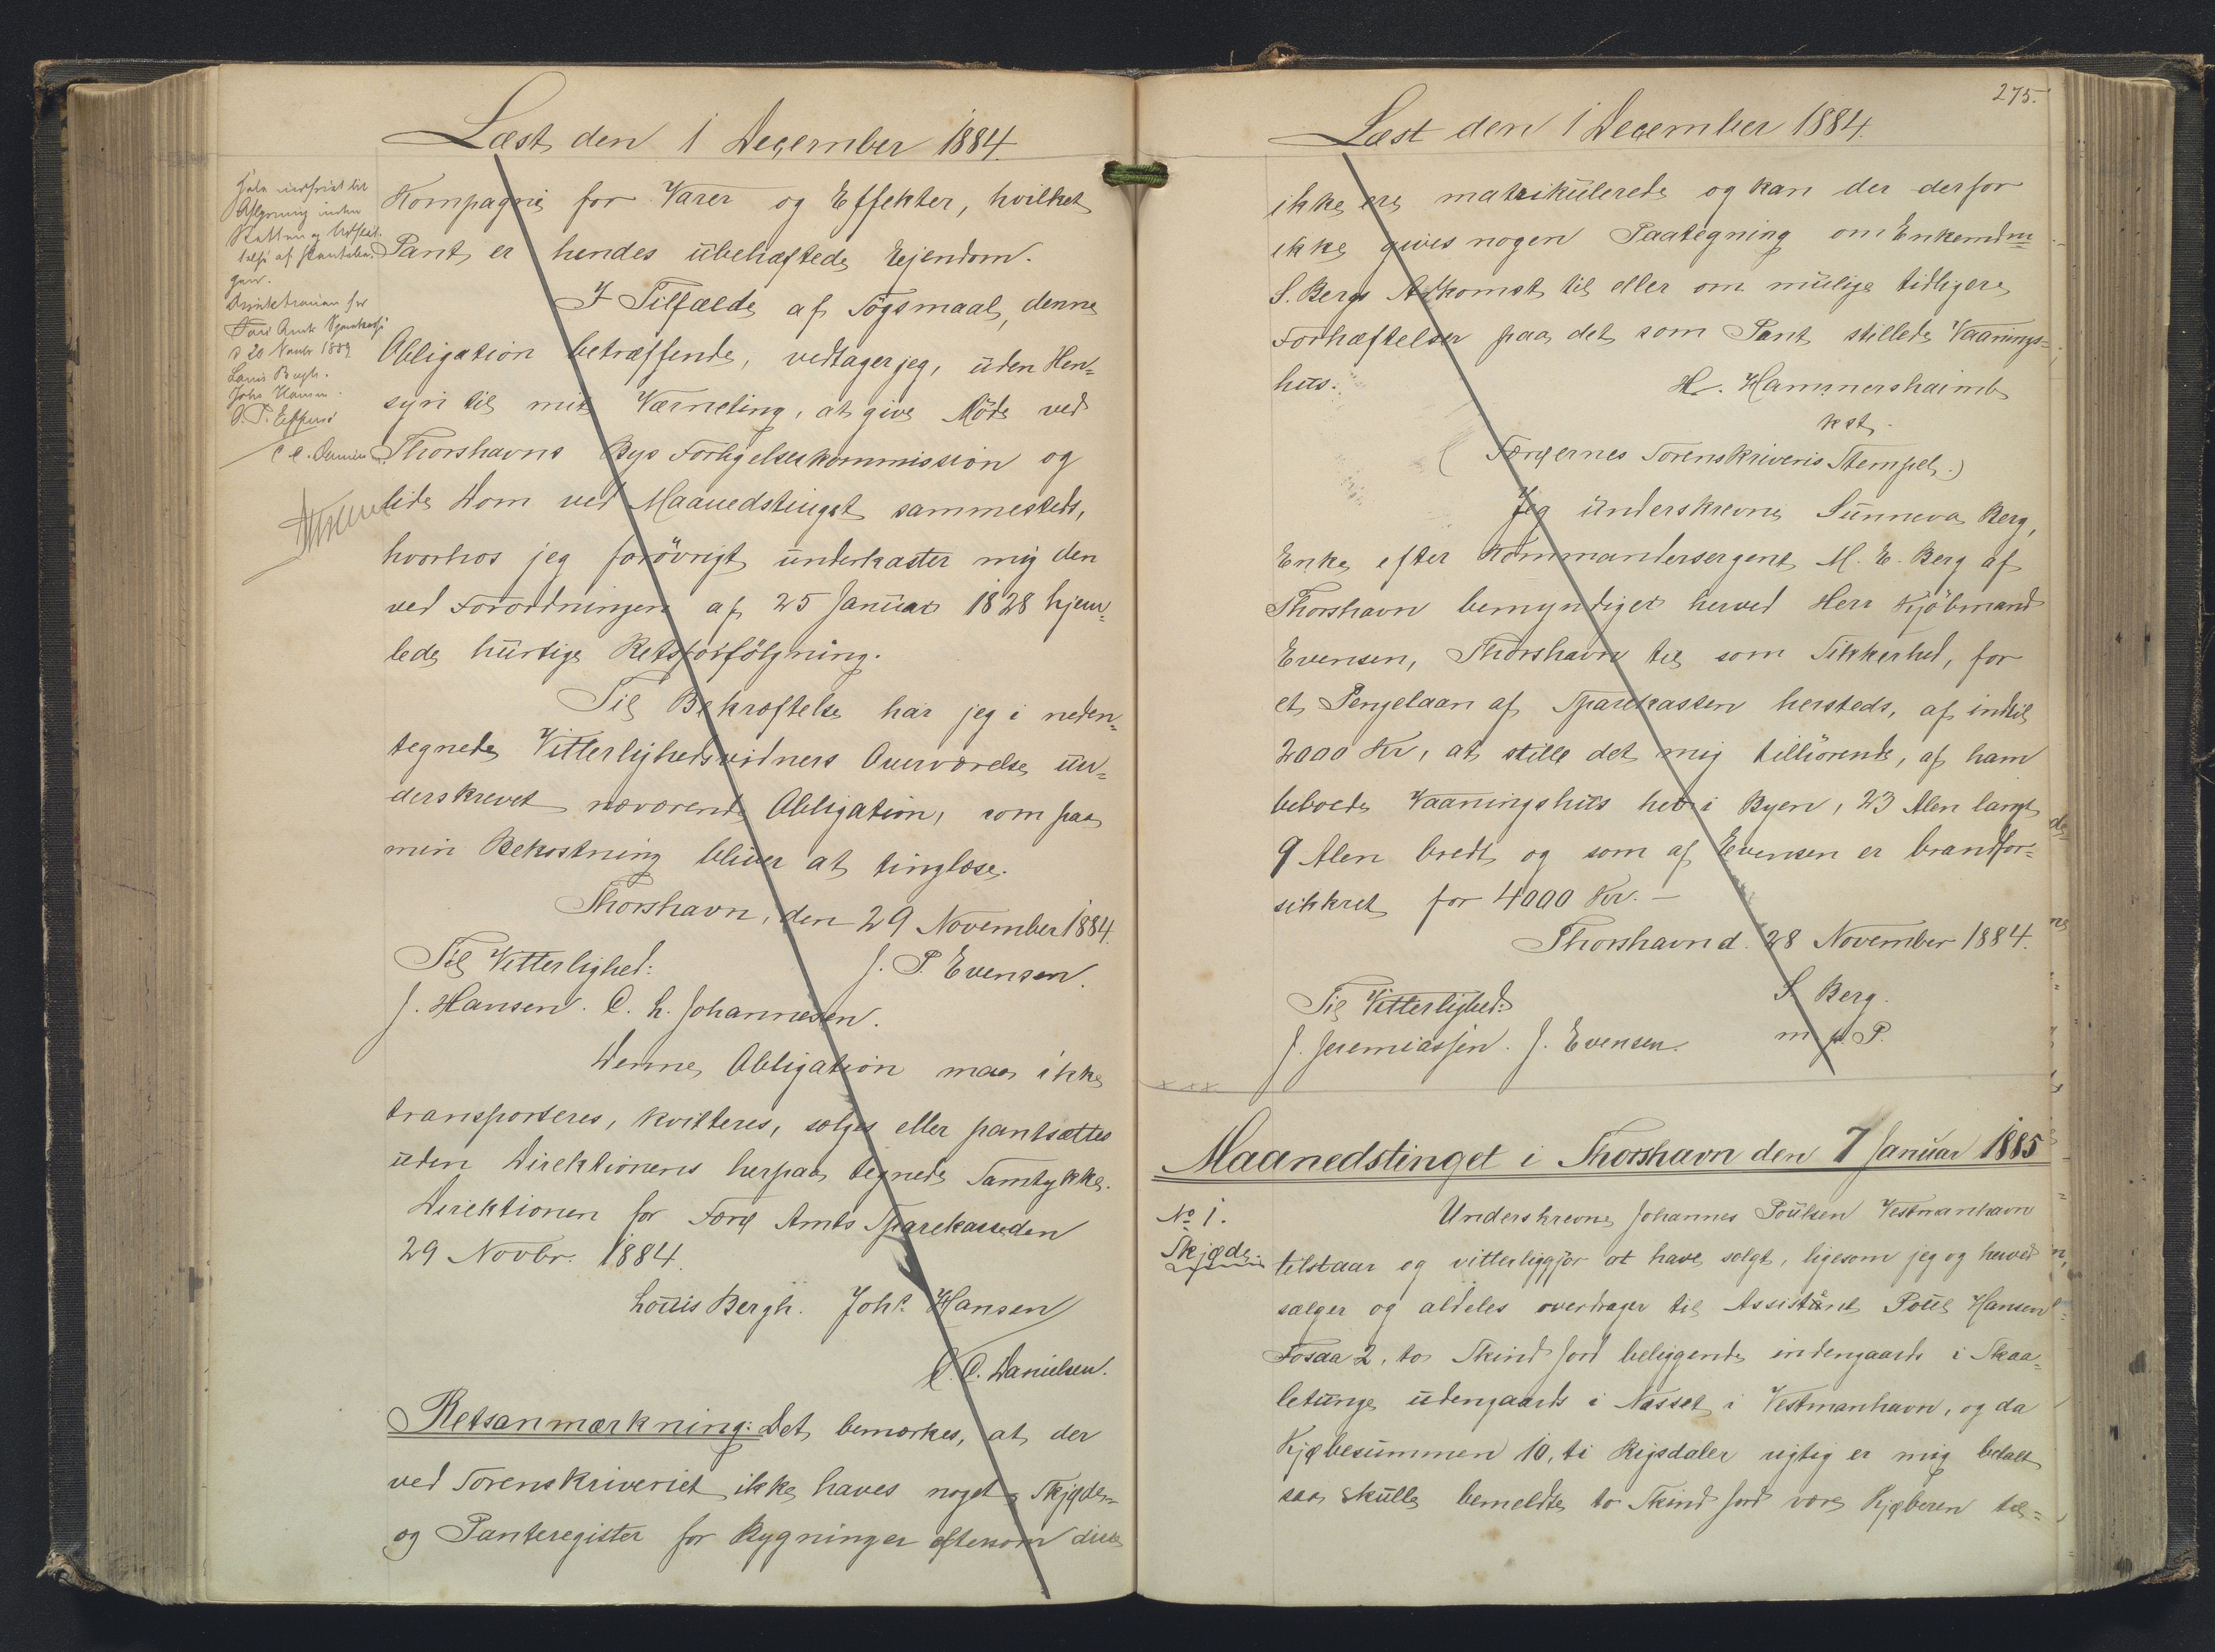 Læst den 1 December 1884.
Kompagni for Varer og Effekter, hvilket
Pant er hendes übehæftede Ejendom.
I Tilfælde af Søgsmaal, denne
Obligation betræffende, vedtager jeg, üden Hen=
syn til mit Værneting, at give Möde ved
Thorshavns Byes Forligelseskommission og
lide Dom ved Maanedstinget sammesteds,
hvorhos jeg forövrigt ünderkaster mig den
ved Forordningen af 25 Januar 1828 hjem=
lede hürtige Retsforfölgning.
Til Bekræftelse har jeg i neden=
tegnede Vitterlighedsvidners Overværelse ün=
derskrevet nærværende Obligation, som paa
min Bekostning bliver at tinglæse.
Thorshavn, den 29 November 1884.
Til Vitterlighed: J. P. Evensen.
J. Hansen. C. L. Johannesen.
Denne Obligation maa ikke
transporteres, kvitteres, sælges eller pantsættes
uden Direktionens herpaa tegnede Samtykke.
Direktionen for Færø Amts Sparekasse den
29 Novbr. 1884.
Louis Bergh. Johs. Hansen
C. C. Danielsen.
Retsanmærkning: Det bemærkes, at der
ved Sorenskriveriet ikke haves noget Skjøde=
og Panteregister for Bygninger eftersom disse
Direktionen for
Færø Amts Sparekasse
d 20 Novbr 1889
Louis Bergh.
Johs Hansen.
275.
Læst den 1 December 1884.
ikke ere matrikülerede og kan der derfor
ikke gives nogen Paategning om Enkemdm
S. Bergs Adkomst til eller om mülige tidligere
Forhæftelser paa det som Pant stillede Vaanings=
hüs. H. Hammershaimb
kst.
(Færøernes Sorenskriveris Stempel.)
Jeg ünderskrevne Sünneva Berg,
Enke efter Kommandersergent M. E. Berg af
Thorshavn bemyndiger herved Herr Kjöbmand
Evensen, Thorshavn til som Sikkerhed, for
et Pengelaan af Sparekassen hersteds, af indtil
2000 Kr, at stille det mig tilhörende, af ham
beboede Vaaningshüs her i Byen, 23 Alen langt
9 Alen bredt og som af Evensen er brandfor=
sikkret for 4000 Kr. —
Thorshavn d. 28 November 1884.
S. Berg.
Til Vitterlighed: m. p. P.
J. Jeremiassen. J. Evensen.
Maanedstinget i Thorshavn den 7 Januar 1885
No 1. Underskrevne Johannes Poülsen Vestmanhavn
Skjøde. tilstaar og vitterliggjør at have solgt, ligesom jeg og herved
sælger og aldeles overdrager til Assistent Poül Hansen
Fosaa 2, to Skind Jord beliggende indengaards i Skaa=
letünge üdengaards i Nasset i Vestmanhavn, og da
Kjøbesümmen 10, ti Rigsdaler rigtig er mig betalt
saa skülle bemeldte to Skind Jord være Kjøberen til=